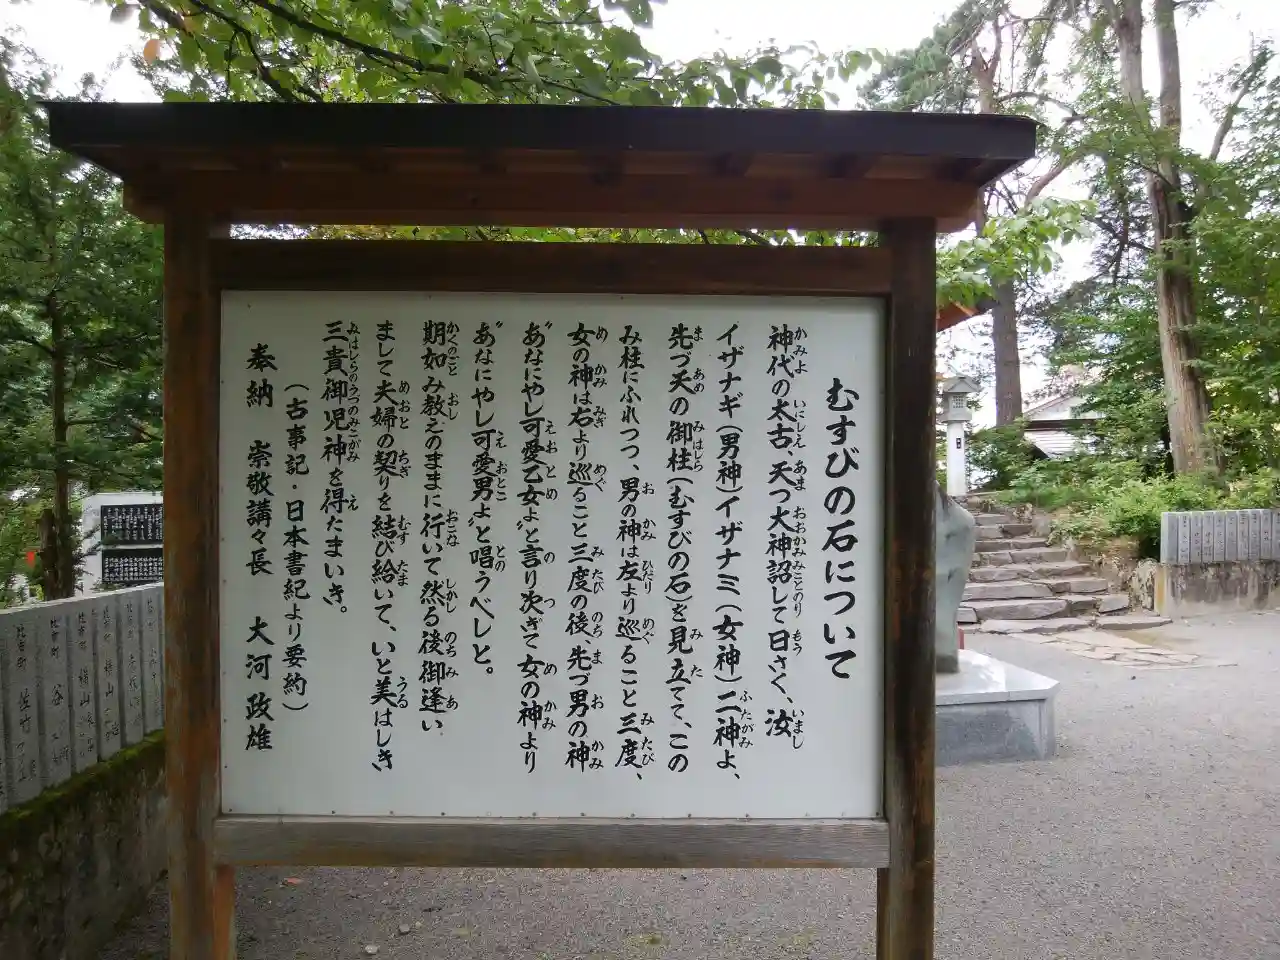 むすびの石について
神代の太古、天つ大神詔して曰さく、汝
イザナギ(男神)イザナミ(女神)二神よ、
先づ天の御柱(むすびの石)を見立てて、この
み柱にふれつつ、男の神は左より巡ること三度、
女の神は右より巡ること三度の後先づ男の神
〝あなにやし可愛乙女よ〟と言り次ぎて女の神より
〝あなにやし可愛男よ〟と唱うべしと。
期如み教えのままに行いて然る後御逢い
まして夫婦の契りを結び給いて、いと美はしき
三貴御児神を得たまいき。
(古事記・日本書紀より要約)
奉納 崇敬講々長 大河政雄